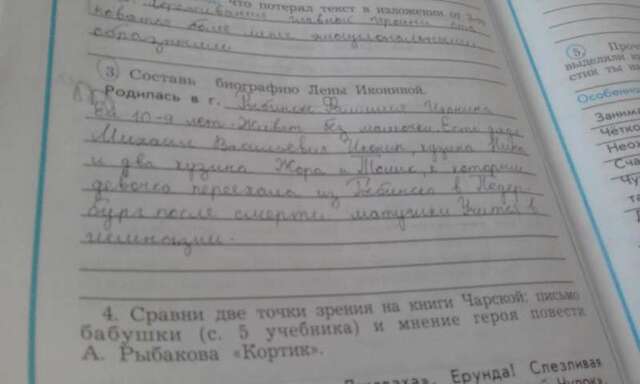 что потерял текст в изложении от 3-го
Переживания главной героини ста
новятся более менее эмоциональными
образными
3 Составь биографию Лены Икониной.
Родилась в г. Рыбинске Фамилия Иконина
Ей 10-9 лет. Живёт без матери. Есть дядя
Михаил Васильевич Иконин, кузина Нина
и два кузина Жорж и Толик, к которым
девочка переехала из Рыбинска в Петер
бург после смерти матушки Учится в
гимназии.
4. Сравни две точки зрения на книги Чарской: письмо
бабушки (с. 5 учебника) и мнение героя повести
А. Рыбакова «Кортик».
Ерунда! Слезливая
5. Про
выделили
стик ты на
Особенно
Занима
Чётко
Неож
Сча
Чу
та